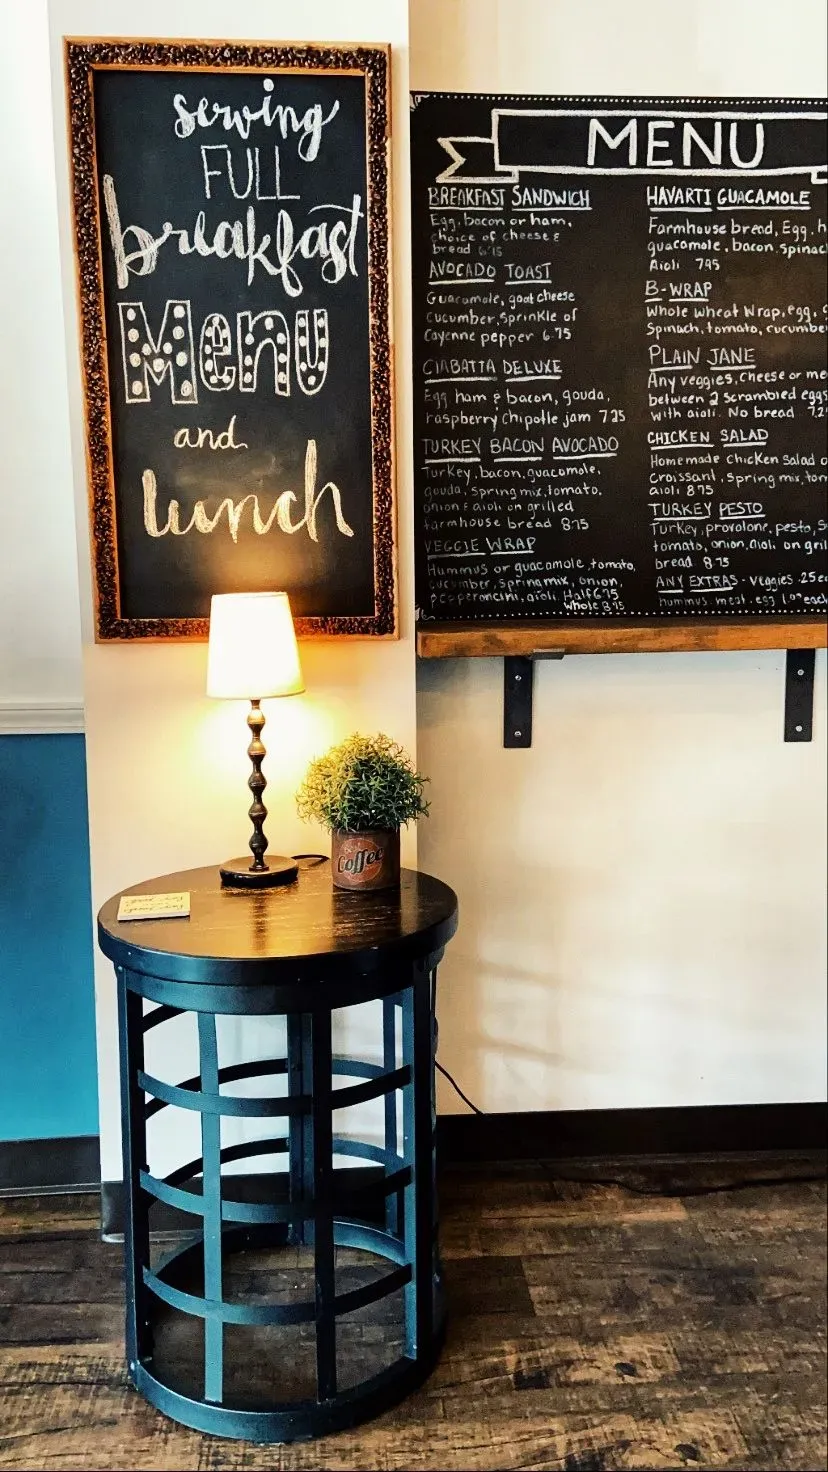 serving
FULL
breakfast
Menu
and
lunch
MENU
BREAKFAST SANDWICH
Egg, bacon or ham,
choice of cheese &
bread 6.75
AVOCADO TOAST
Guacamole, goat cheese
Cucumber, Sprinkle of
Cayenne pepper 6.75
CIABATTA DELUXE
Egg ham & bacon, gouda,
raspberry chipotle jam 7.25
TURKEY BACON AVOCADO
Turkey, bacon, guacamole,
gouda, spring mix, tomato,
onion & aioli on grilled
farmhouse bread 8.75
VEGGIE WRAP
Hummus or guacamole, tomato,
cucumber, spring mix, onion,
pepperoncini, aioli. Half 6.75
Whole 8.75
HAVARTI GUACAMOLE
Farmhouse bread, Egg, h
guacamole, bacon, spinac
Aioli 7.95
B-WRAP
Whole Wheat Wrap, egg,
Spinach, tomato, cucumber
PLAIN JANE
Any veggies, cheese or me
between 2 scrambled eggs
with aioli. No bread 7.2
CHICKEN SALAD
Homemade chicken Salad o
Croissant, Spring mix, tom
aioli 8.75
TURKEY PESTO
Turkey, provolone, pesto, S
tomato, onion, aioli on gril
bread 8.75
ANY EXTRAS - veggies .25 e
hummus, meat, egg 1.00 each
Coffee